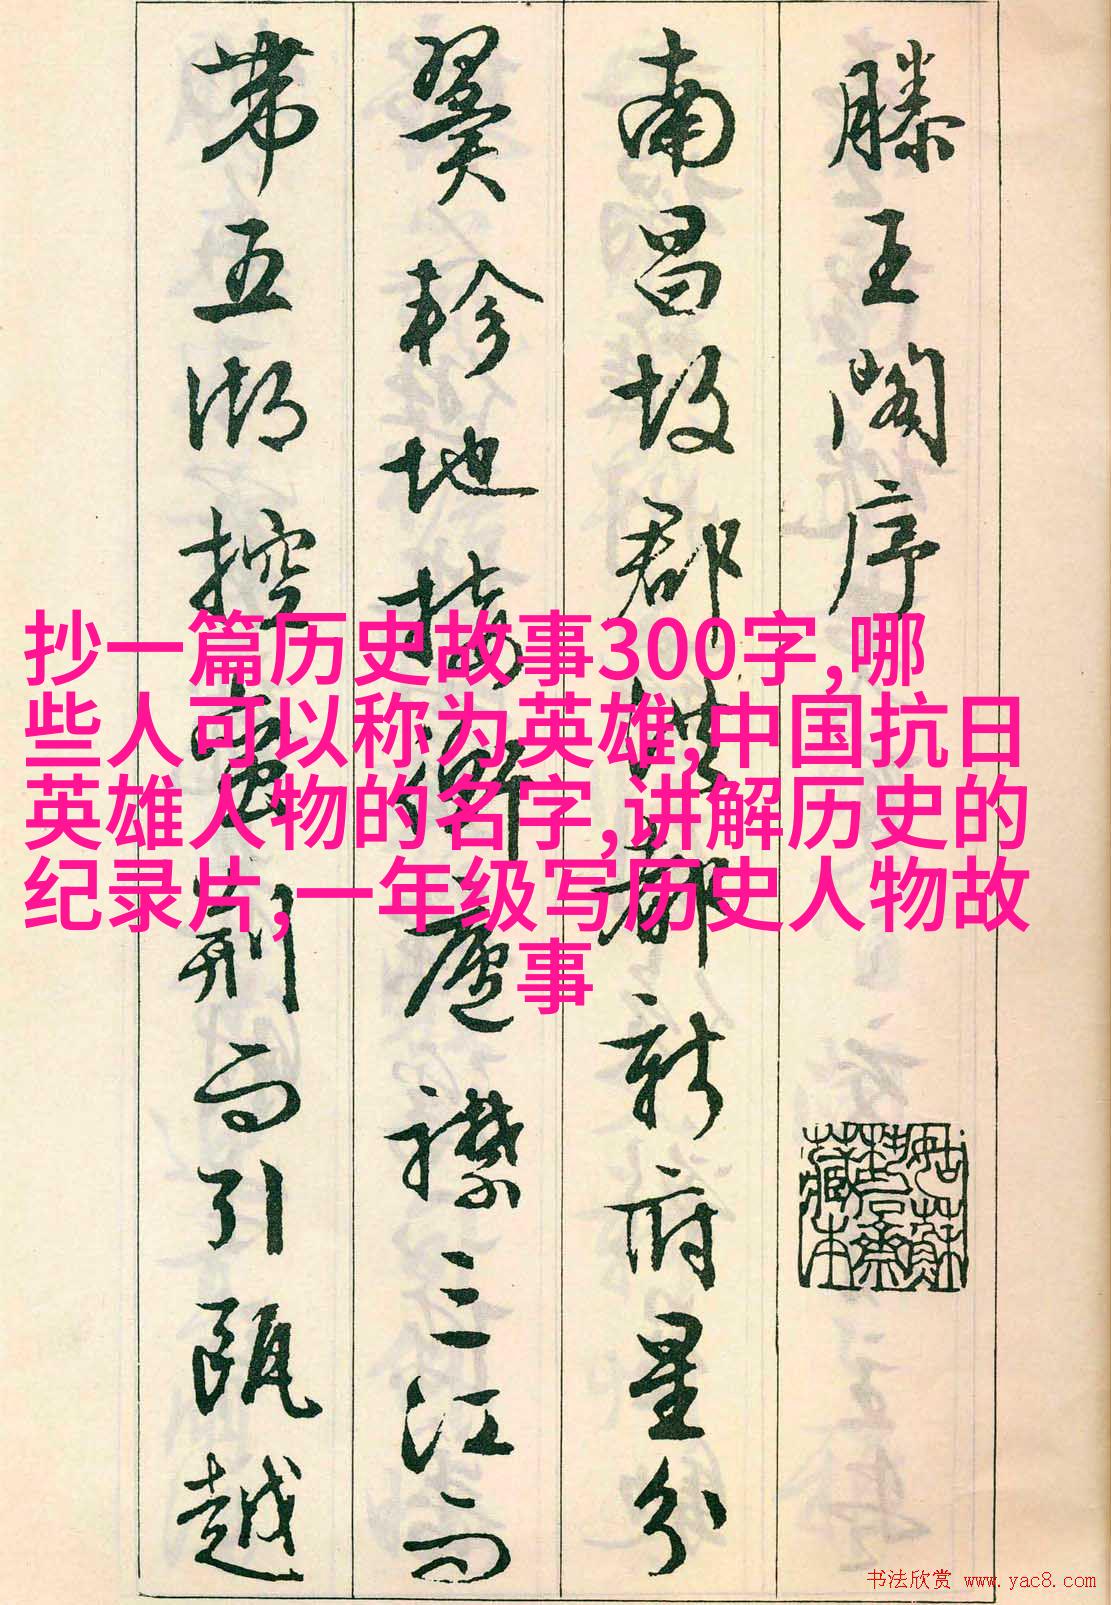 滕王閣序
南昌故郡洪都新府星分
翼軫地接衡廬襟三江而
帶五湖控蛮荊而引甌越
抄一篇历史故事300字,哪
些人可以称为英雄,中国抗日
英雄人物的名字,讲解历史的
纪录片,一年级写历史人物故
事
书法欣赏 www.yac8.com